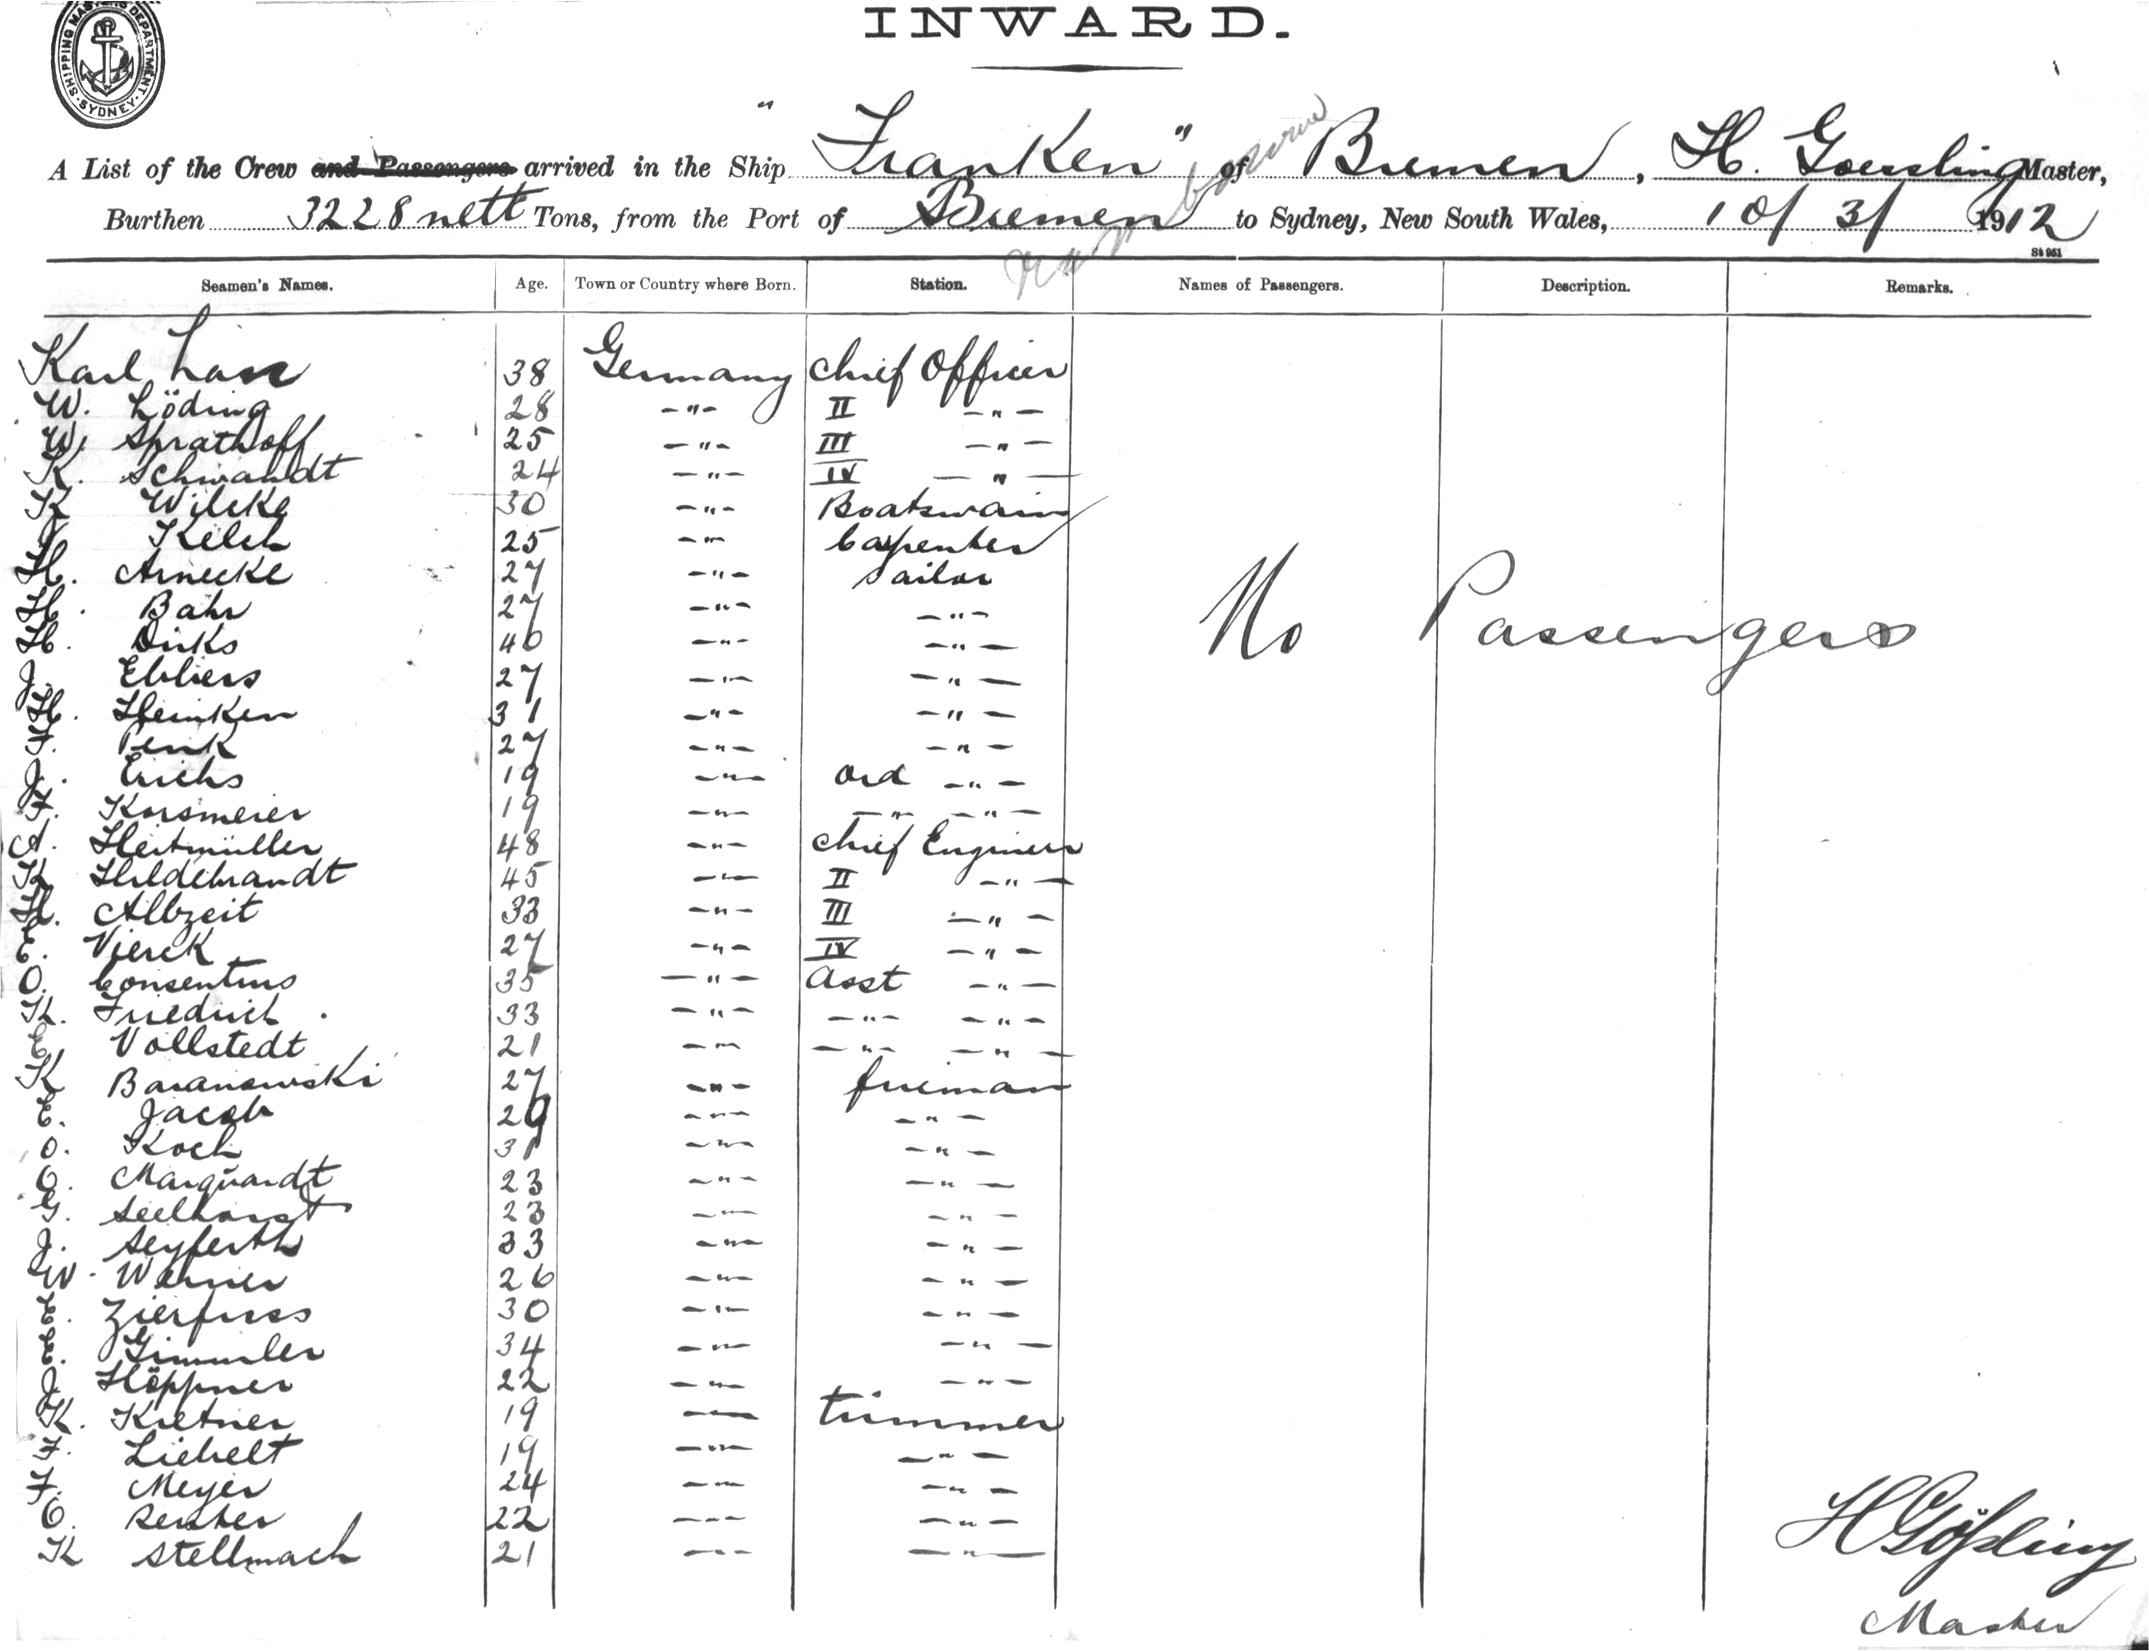 SHIPPING MASTERS DEPARTMENT. SYDNEY.
INWARD.
A List of the Crew and Passengers arrived in the Ship "Franken" of Bremen, H. Goessling Master,
Burthen 3228 nett Tons, from the Port of Bremen to Sydney, New South Wales, 10/3/1912
St 951
Seamen's Names. Age. Town or Country where Born. Station. Names of Passengers. Description. Remarks.
Karl 38 Germany Chief Officer
W. Löding 28 -"- II -"-
W. Sprathoff 25 -"- III -"-
K. Schwandt 24 -"- IV -"-
K Wilcke 30 -"- Boatswain
Kelch 25 -"- Carpenter
H. Arnecke 27 -"- Sailor
H. Bahr 27 -"- -"-
H. Dirks 40 -"- -"-
No Passengers
J. Ebliers 27 -"- -"-
H. Heinken 31 -"- -"-
F. Penk 27 -"- -"-
J. Erichs 19 -"- ord -"-
F. Korsmeier 19 -"- -"- -"-
A. Heitmüller 48 -"- Chief Engineer
K Hildebrandt 45 -"- II -"-
H. Albzeit 33 -"- III -"-
E. Vierck 27 -"- IV -"-
O. Consentius 35 -"- Asst -"-
K. Friedrich 33 -"- -"- -"-
E. Vollstedt 21 -"- -"- -"-
K Baranowski 27 -"- fireman
E. Jacob 29 -"- -"-
O. Koch 31 -"- -"-
O. Marquardt 23 -"- -"-
G. Seelhorst 23 -"- -"-
J. Seyferth 33 -"- -"-
W. Werner 26 -"- -"-
E. Zierfuss 30 -"- -"-
E. Gimmler 34 -"- -"-
J. Höppner 22 -"- -"-
K. Kietner 19 -"- trimmer
F. Liebelt 19 -"- -"-
F. Meyer 24 -"- -"-
O. 22 -"- -"-
K Stellmach 21 -"- -"-
H Gößling
Master